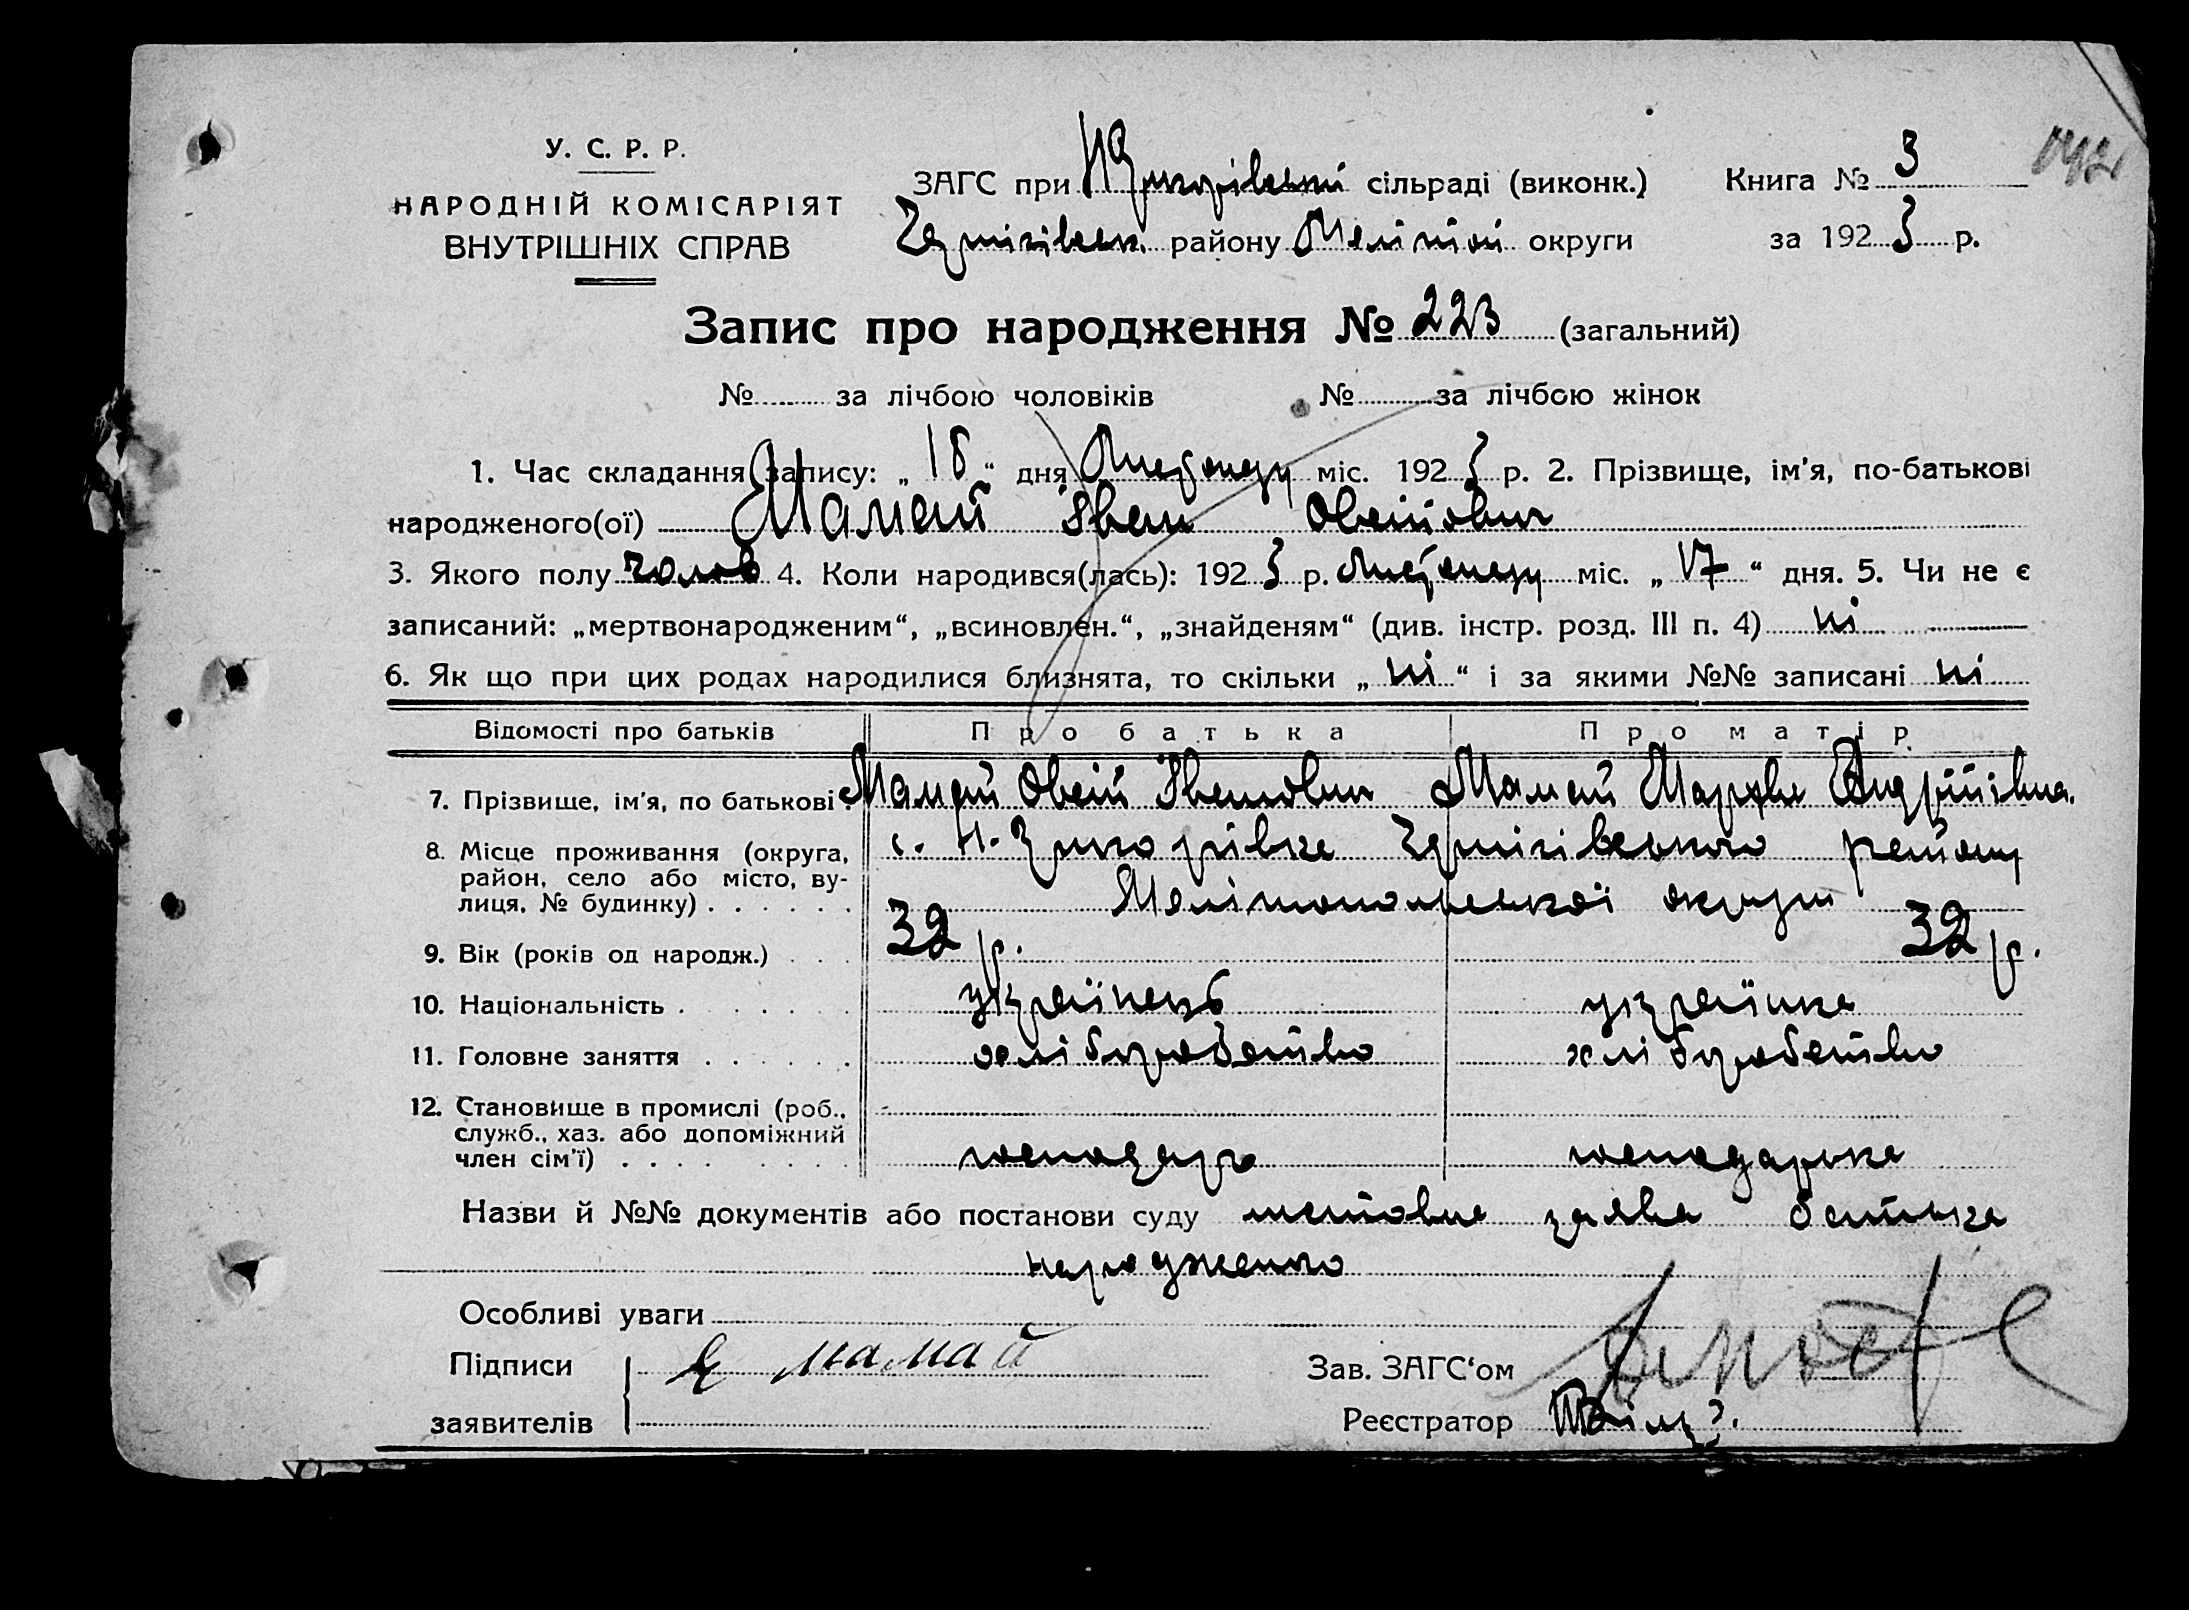 У. С. Р. Р.
НАРОДНІЙ КОМІСАРІЯТ
ВНУТРІШНІХ СПРАВ
ЗАГС при сільраді (виконк.) Книга № 3
району округи за 192 р.
Запис про народження № 223 (загальний)
№ за лічбою чоловіків № за лічбою жінок
1. Час складання запису: „ 18 “ дня міс. 192 р. 2. Прізвище, ім'я, по-батькові
народженого(ої) Мамай Іван Овсійович
3. Якого полу чолов 4. Коли народився(лась): 192 р. Листопаду міс. „ 17 “ дня. 5. Чи не є
записаний: „мертвонародженим“, „всиновлен.“, „знайденям“ (див. інстр. розд. III п. 4) ні
6. Як що при цих родах народилися близнята, то скільки „ ні “ і за якими №№ записані ні
Відомості про батьків Про батька Про матір
7. Прізвище, ім'я, по батькові. Мамай Овсій Іванович Мамай Андріївна.
8. Місце проживання (округа, с. Н. Григорівка Чернігівського району
район, село або місто, ву-
лиця, № будинку) Мелітопольської округи
9. Вік (років од народж.) 32 р. 32 р.
10. Національність українець українка
11. Головне заняття хліборобство хліборобство
12. Становище в промислі (роб.,
служб., хаз. або допоміжний
член сім'ї) господарь господарька
Назви й №№ документів або постанови суду заява батька
народженого
Особливі уваги
Підписи мамай Зав. ЗАГС'ом
заявителів Реєстратор